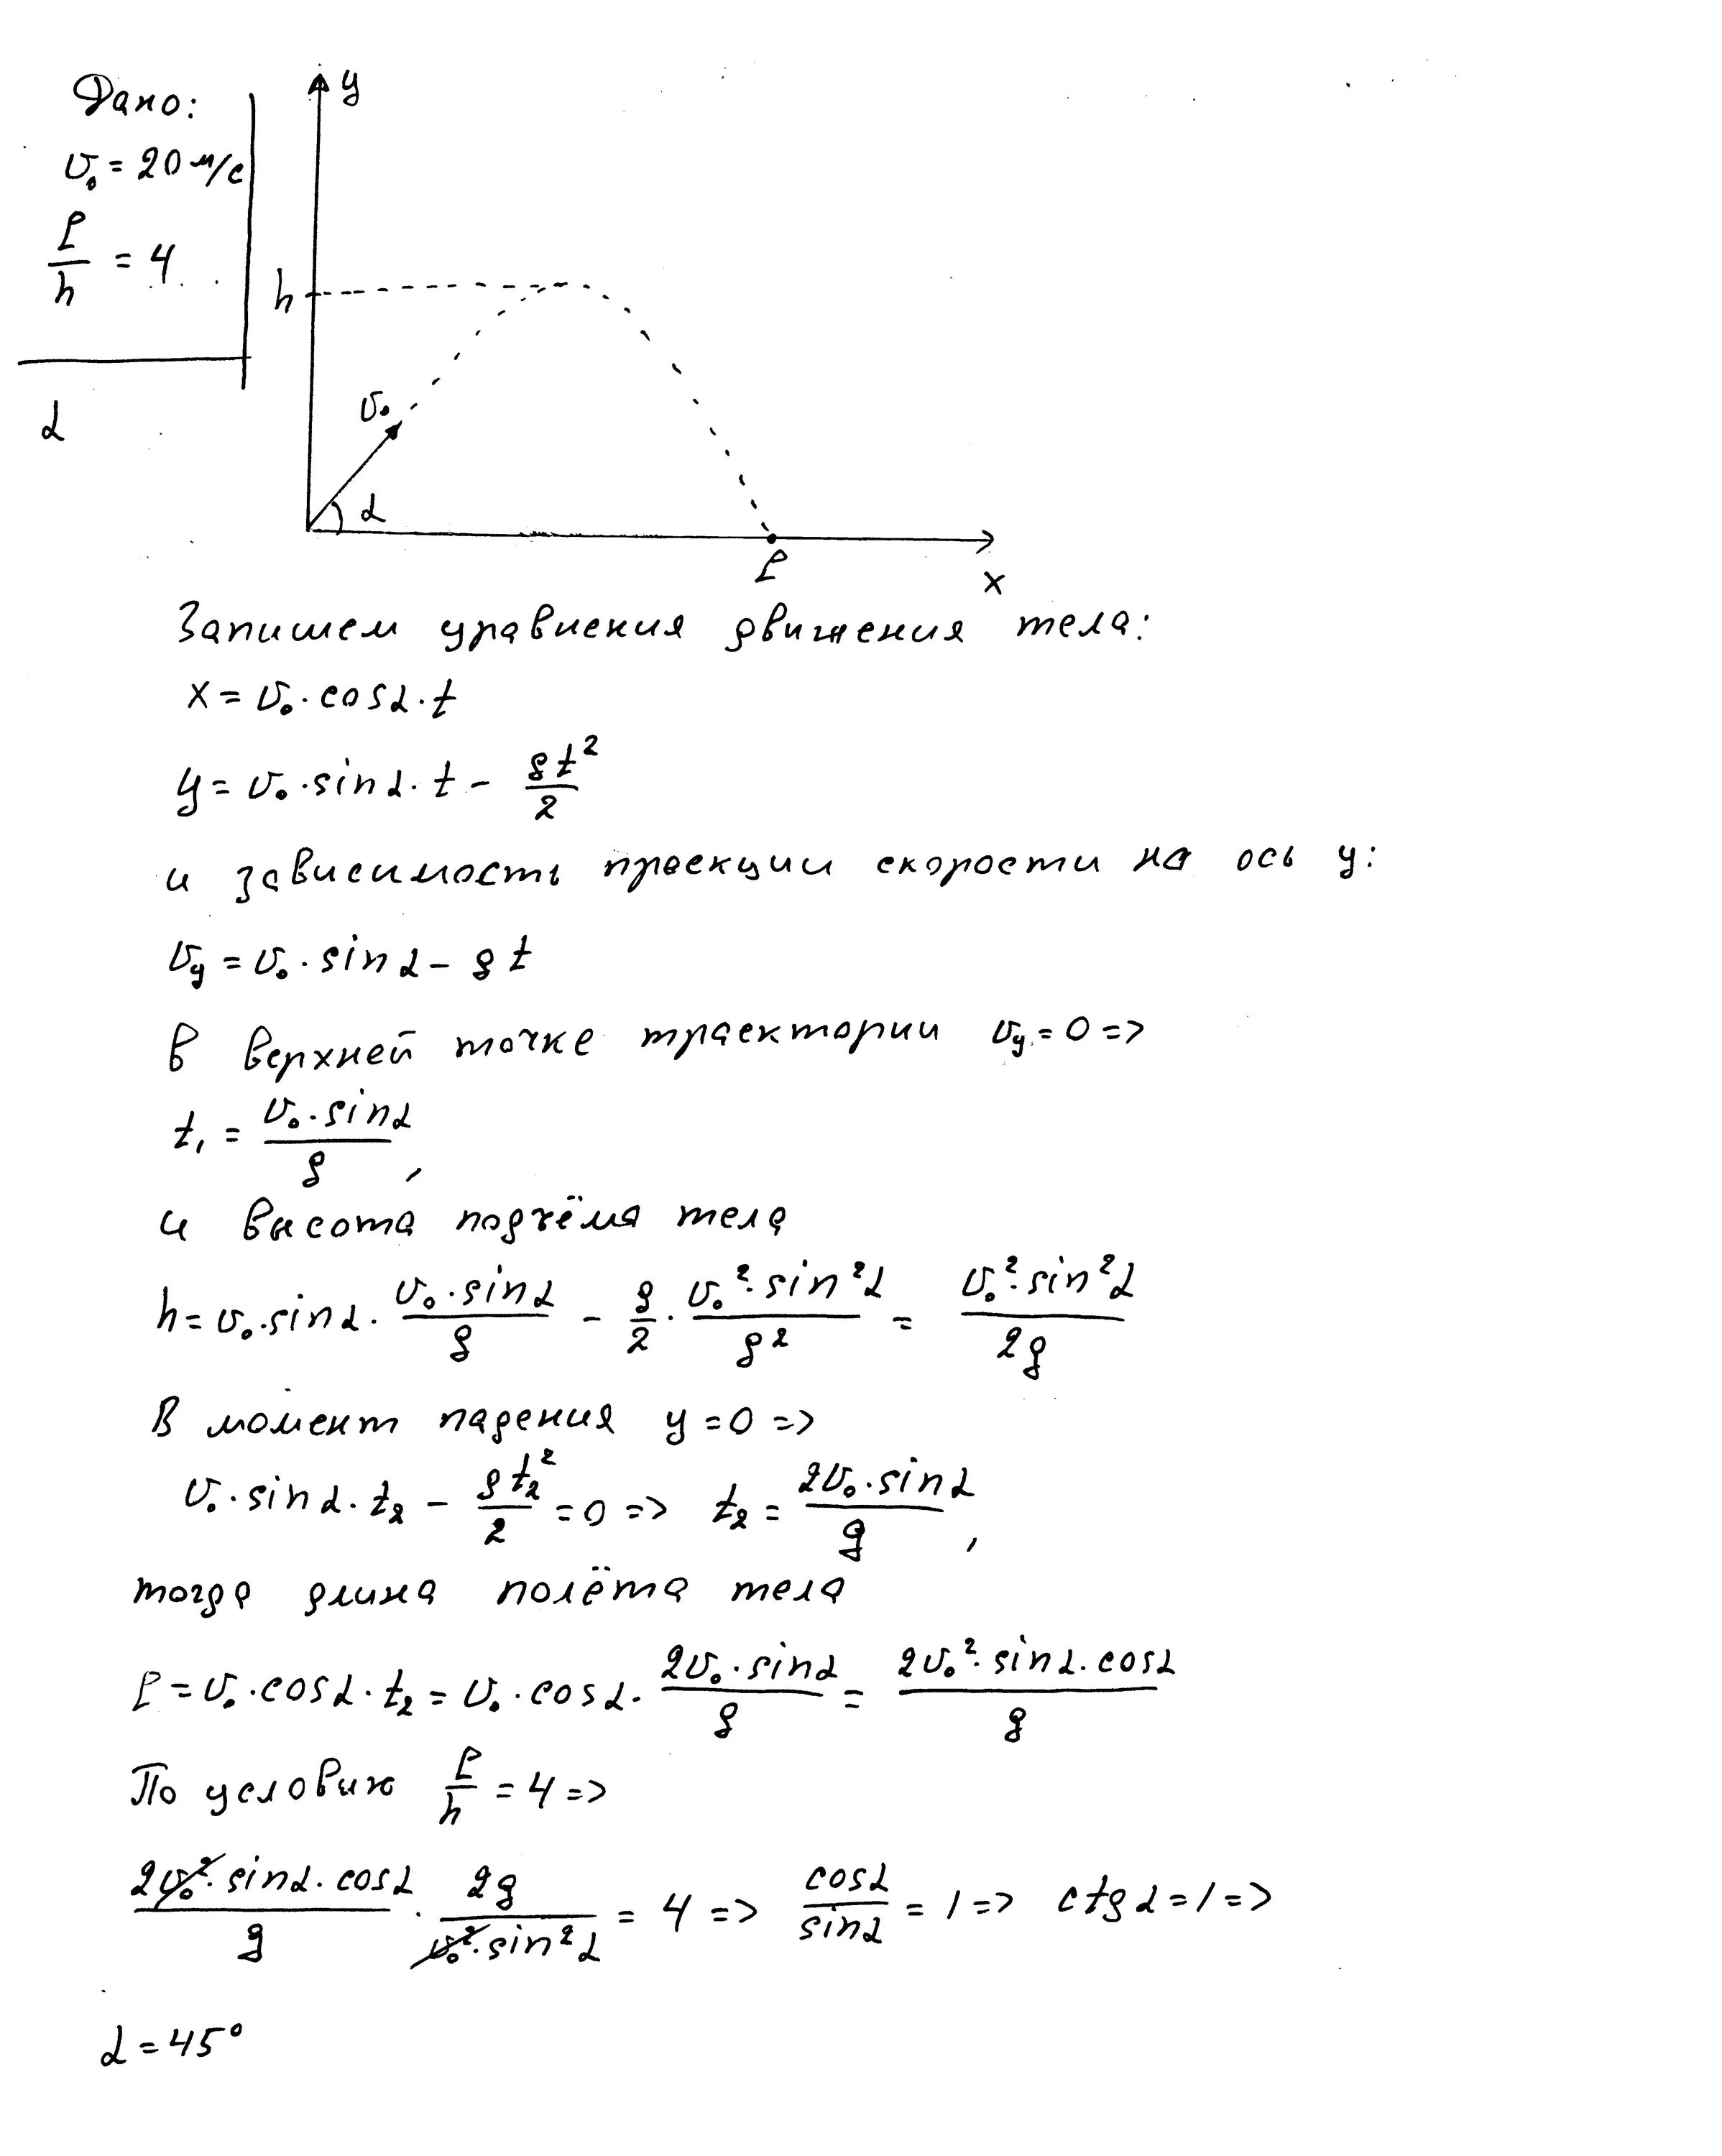 Дано:
υ₀ = 20 м/с
ℓ/h = 4
α
y
h
υ₀
α
ℓ
x
Запишем уравнения движения тела:
x = υ₀ · cosα · t
y = υ₀ · sinα · t − gt²/2
и зависимость проекции скорости на ось y:
υy = υ₀ · sinα − gt
В верхней точке траектории υy = 0 =>
t₁ = υ₀ · sinα / g ,
и высота подъёма тела
h = υ₀ · sinα · υ₀ · sinα / g − g/2 · υ₀² · sin²α / g² = υ₀² · sin²α / 2g
В момент падения y = 0 =>
υ₀ · sinα · t₂ − gt₂²/2 = 0 => t₂ = 2υ₀ · sinα / g ,
тогда длина полёта тела
ℓ = υ₀ · cosα · t₂ = υ₀ · cosα · 2υ₀ · sinα / g = 2υ₀² · sinα · cosα / g
По условию ℓ/h = 4 =>
2υ₀² · sinα · cosα / g · 2g / υ₀² · sin²α = 4 => cosα / sinα = 1 => ctgα = 1 =>
α = 45°